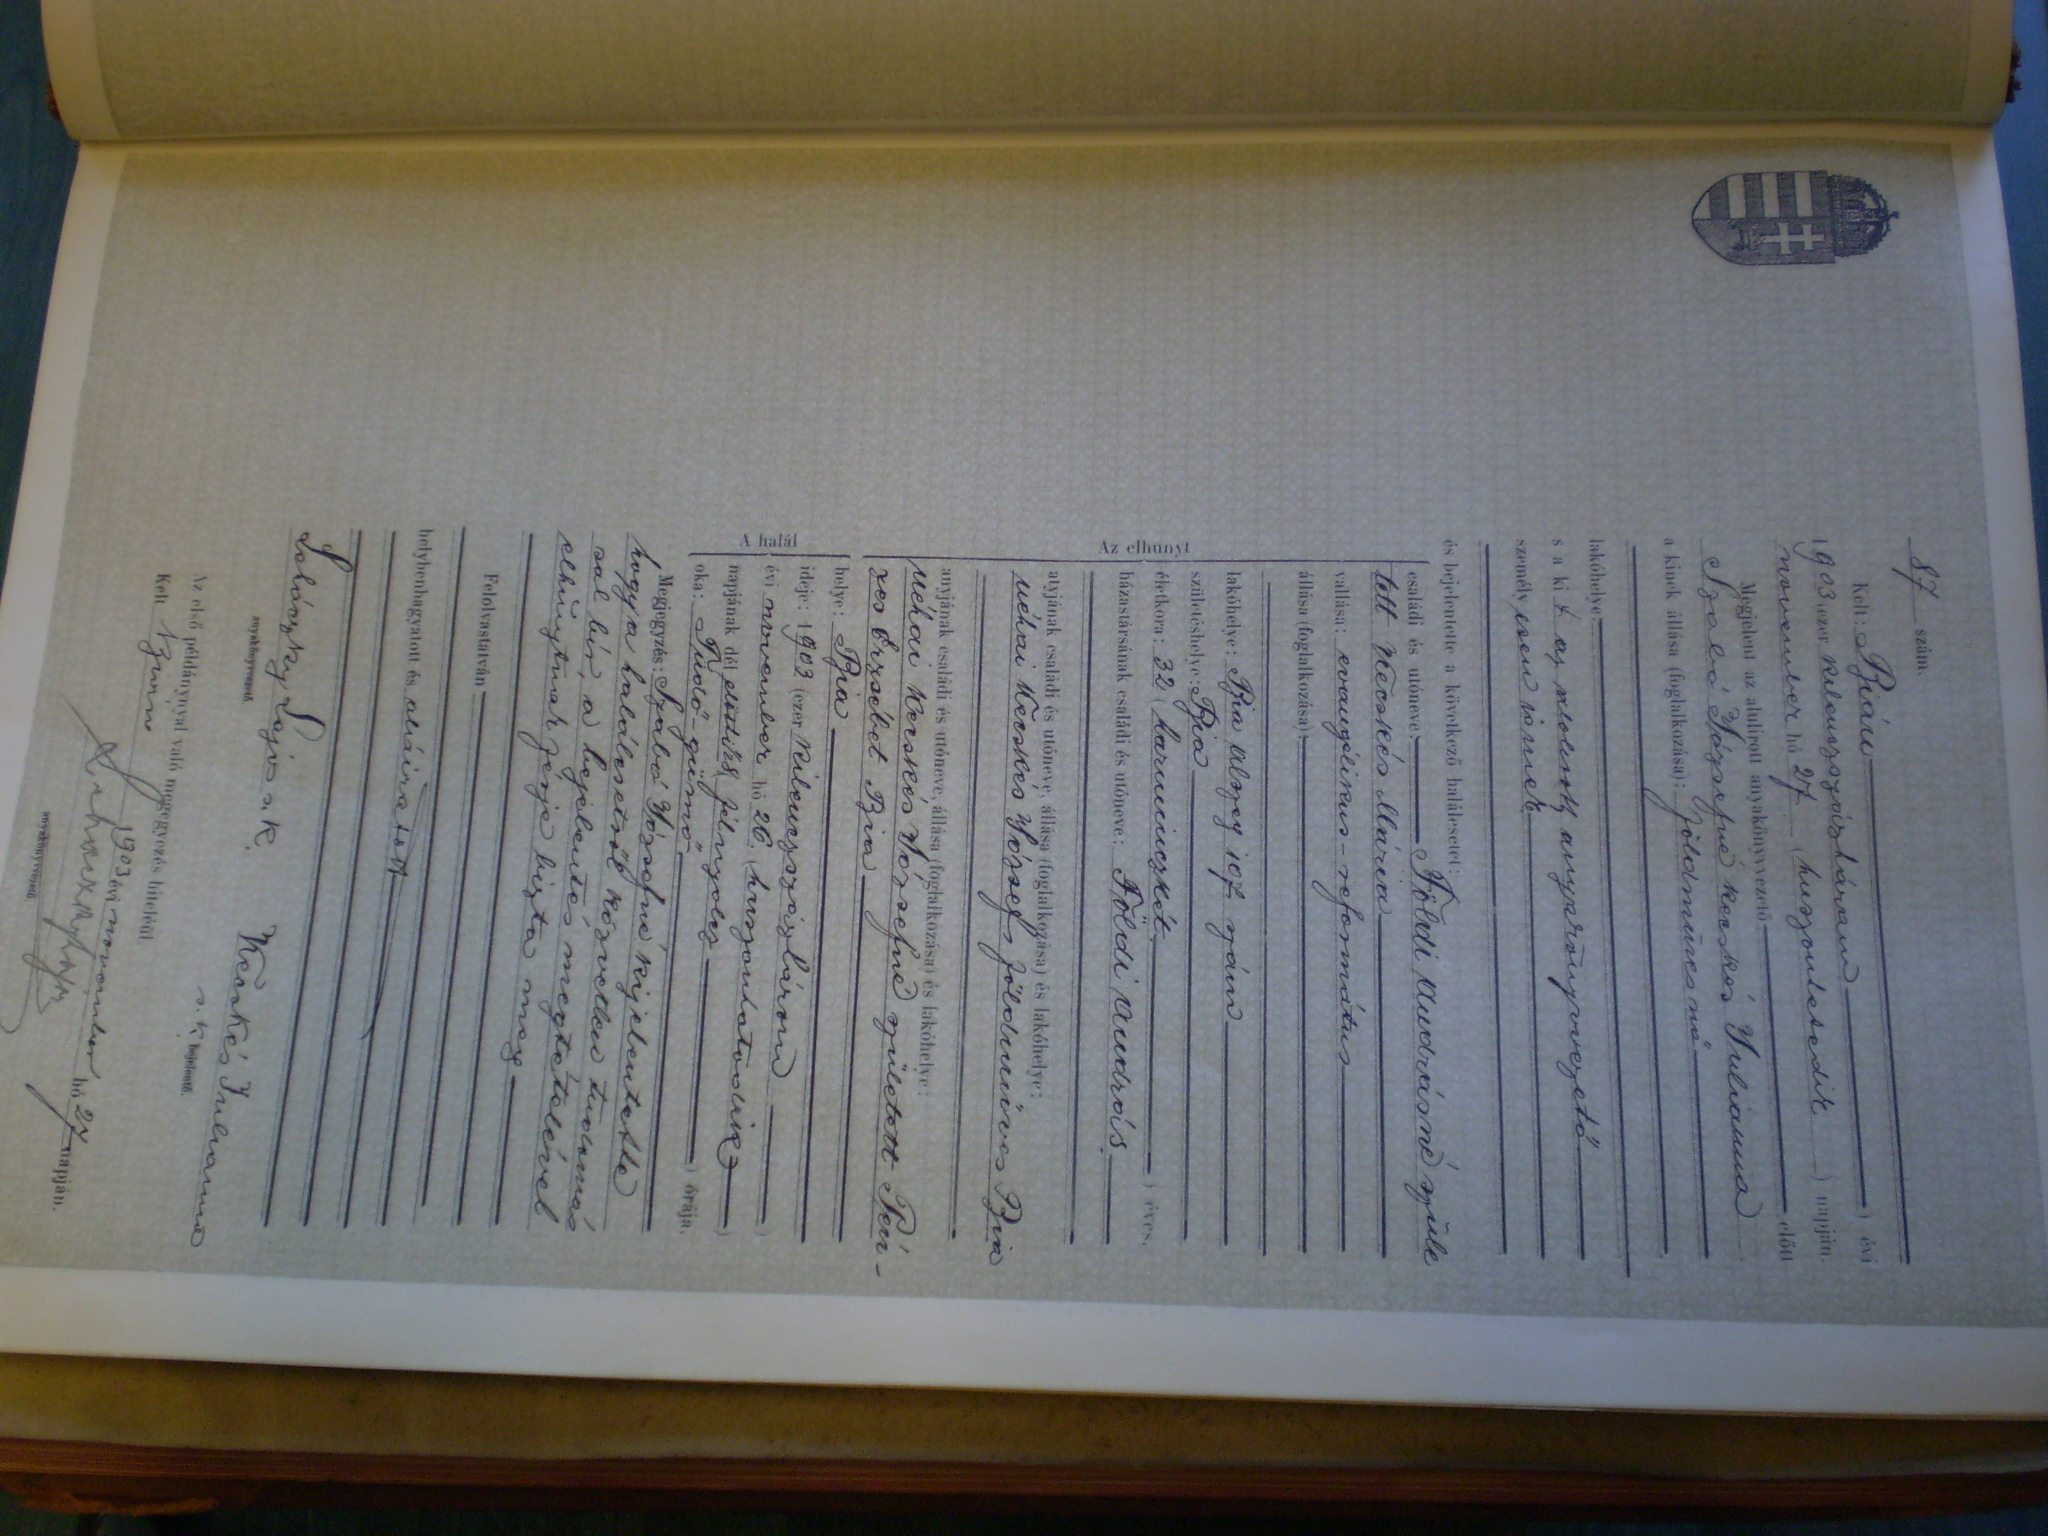 87 szám.
Kelt: Bián ) évi
1903 (ezer kilenczszázhárom
november hó 27 (huszonhetedik ) napján.
Megjelent az alulirott anyakönyvvezető előtt
Szabó Józsefné Kecskés Julianna
a kinek állása (foglalkozása): földmüvesnő
lakóhelye:
s a ki t az alulirott anyakönyvvezető
személyesen ismer
és bejelentette a következő halálesetet:
Az elhunyt
családi és utóneve Földi Andrásné szüle
tett Kecskés Mária
vallása: evangélikus-református
állása (foglalkozása)
lakóhelye: Bia alszeg 107 szám
születéshelye: Bia
életkora: 32 (harminczkét ) éves,
házastársának családi és utóneve: Földi András
atyjának családi és utóneve, állása (foglalkozása) és lakóhelye:
néhai Kecskés József földmüves Bia
anyjának családi és utóneve, állása (foglalkozása) és lakóhelye:
néhai Kecskés Józsefné született Pén-
zes Erzsébet Bia
A halál
helye: Bia
ideje: 1903 (ezer kilenczszázhárom
évi november hó 26. (huszonhatodik )
napjának dél előtti fél nyolcz )
oka: Tüdő-gümő ) órája,
Megjegyzés: Szabó Józsefné kijelentette
hogy a halálesetről közvetlen tudomás
sal bir, a bejelentés megtételével
elhúnytnak férje bizta meg
Felolvastatván
helybenhagyatott és aláíratott
Lajos s. k. Kecskés Julianna
anyakönyvvezető. s. k. bejelentő.
Az első példánynyal való megegyezés hiteléül
Kelt 1903 évi november hó 27 napján.
anyakönyvvezető.